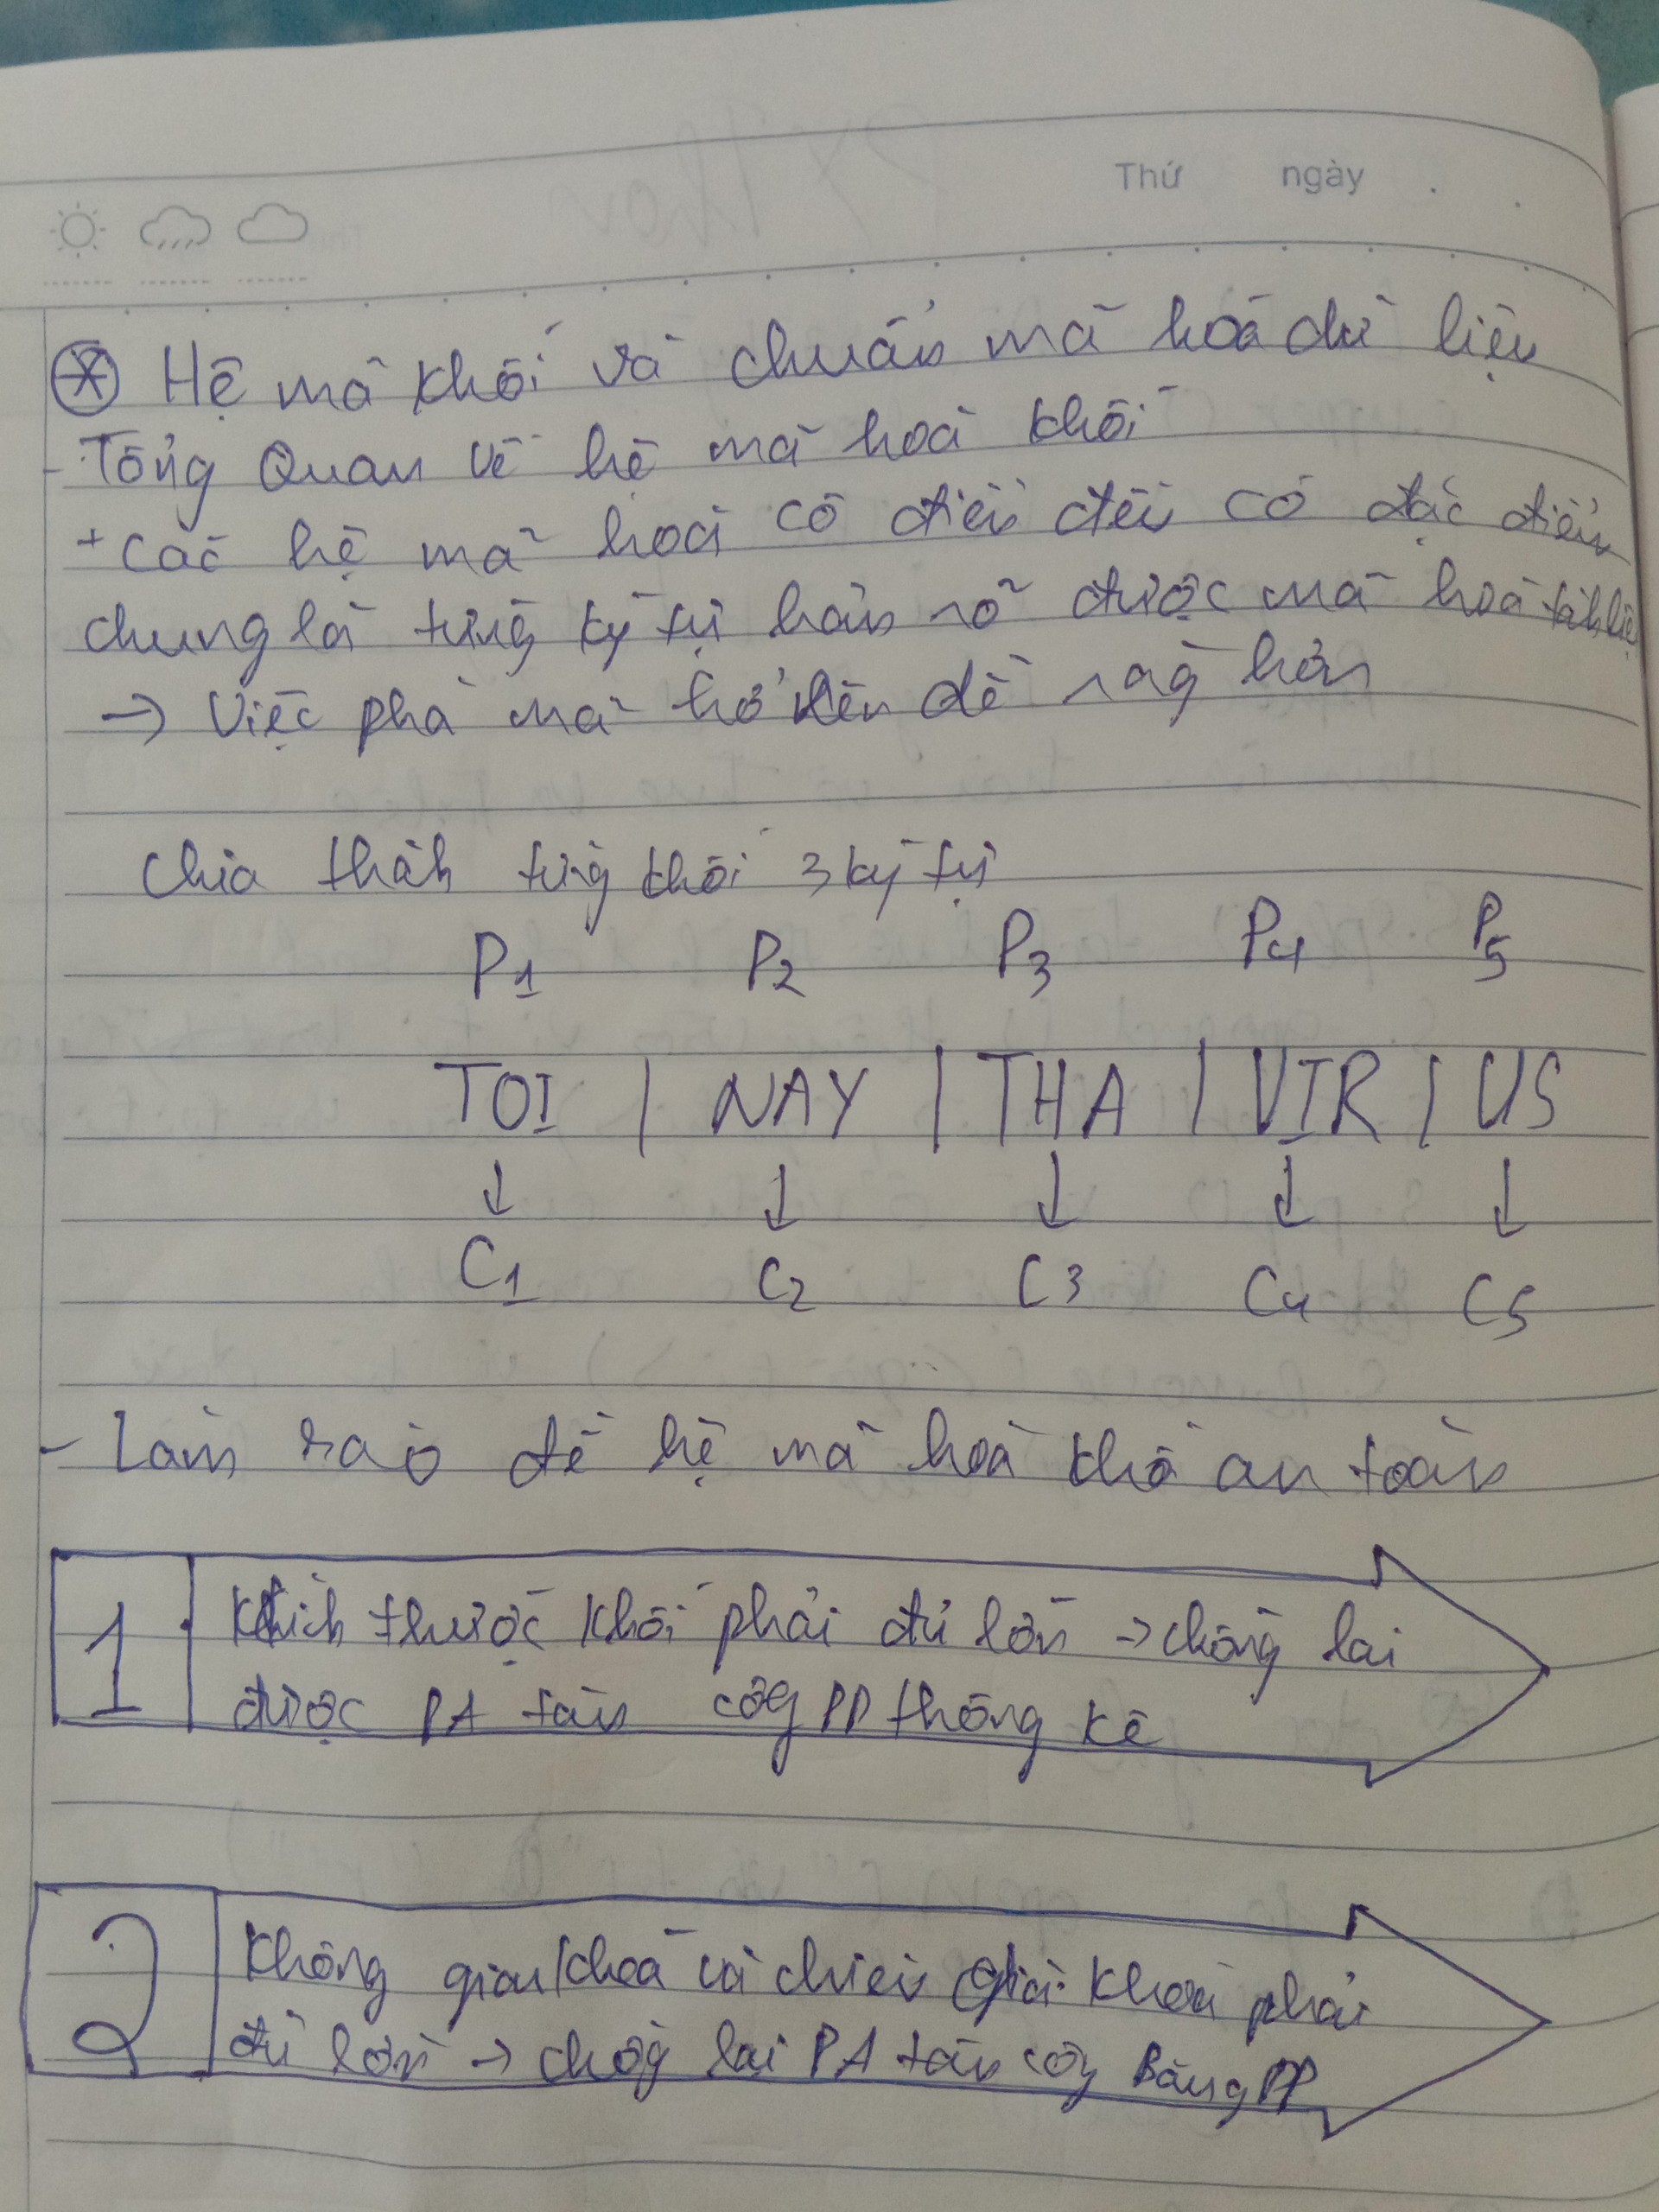 Thứ ngày
⊛ Hệ mã khối và chuẩn mã hoá dữ liệu
- Tổng Quan về hệ mã hoá khối
+ Các hệ mã hoá cổ điển đều có đặc điểm
chung là từng ký tự bản rõ được mã hoá tách biệt
→ Việc phá mã trở nên dễ ràng hơn
Chia thành từng khối 3 ký tự
P1 P2 P3 P4 P5
TOI | NAY | THA | VIR | US
↓ ↓ ↓ ↓ ↓
C1 C2 C3 C4 C5
- Làm sao để hệ mã hoá khối an toàn
1 Kích thước khối phải đủ lớn → chống lại
được PA tấn công PP thống kê
2 Không gian khoá và chiều dài khoá phải
đủ lớn → chống lại PA tấn công Bằng PP